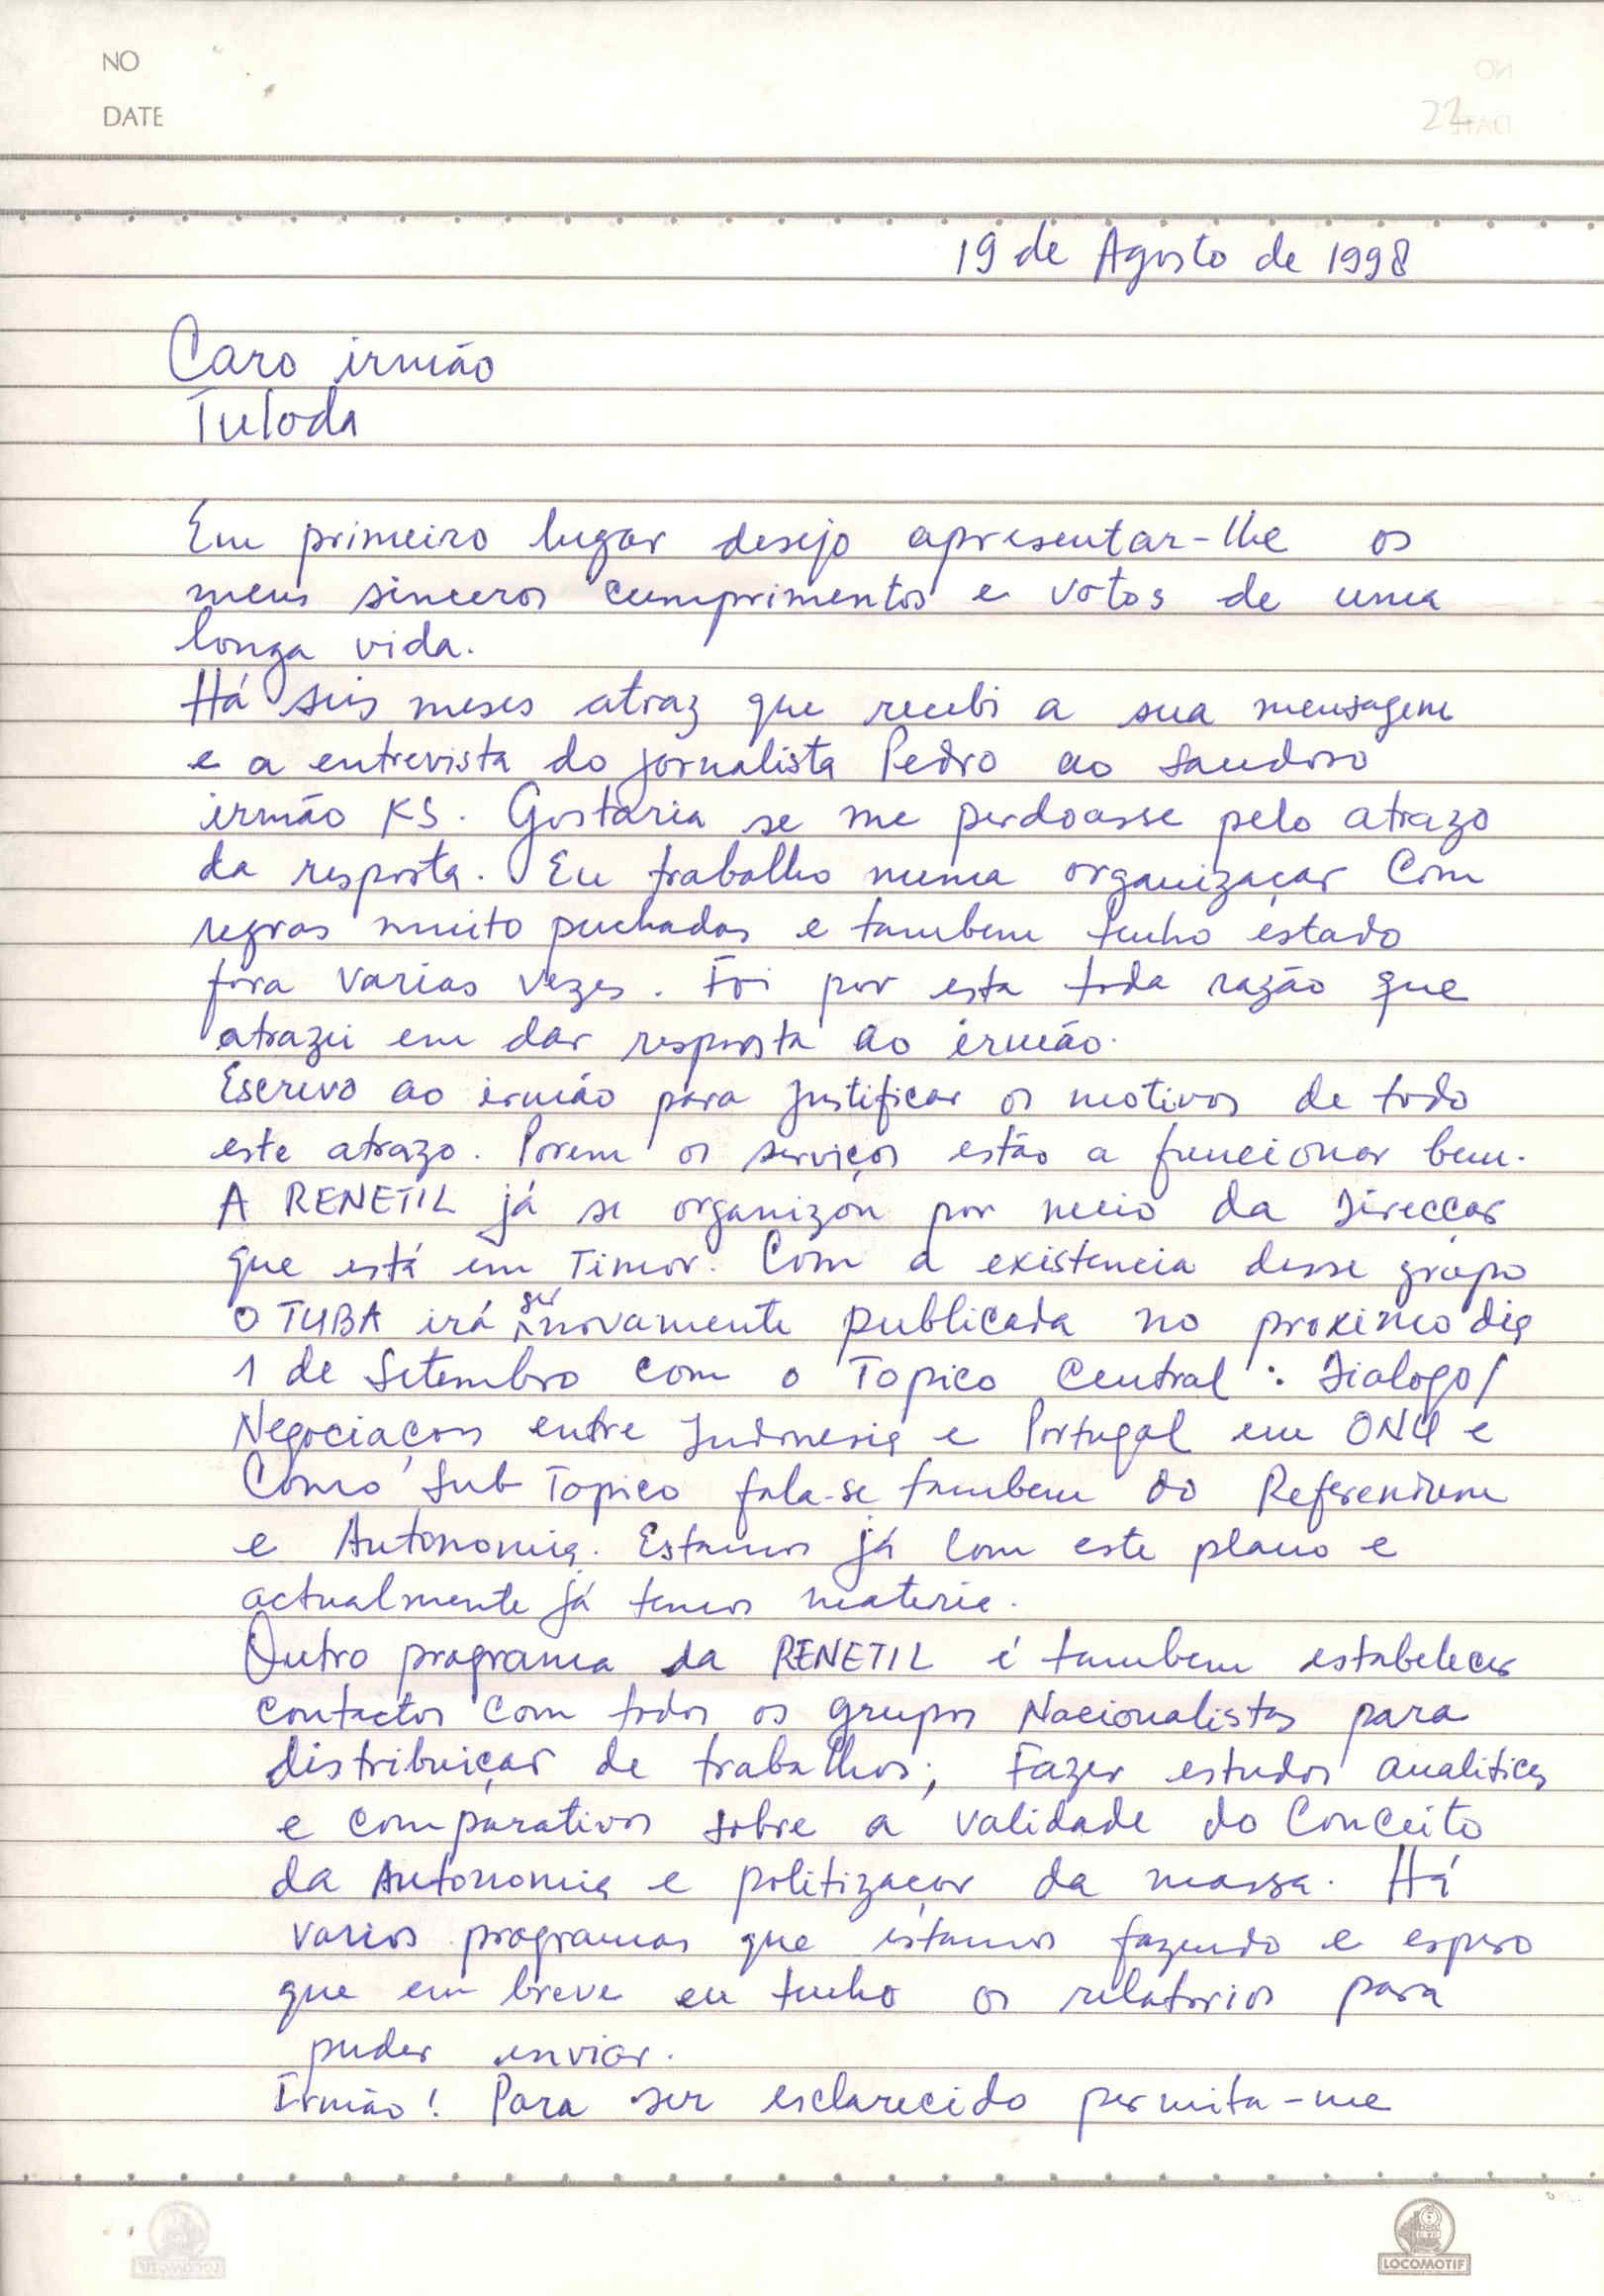 NO
DATE
22
19 de Agosto de 1998
Caro irmão
Tuloda
Em primeiro lugar desejo apresentar-lhe os
meus sinceros cumprimentos e votos de uma
longa vida.
Há seis meses atraz que recebi a sua mensagem
e a entrevista do jornalista Pedro ao saudoso
irmão KS. Gostaria se me perdoasse pelo atrazo
da resposta. Eu trabalho numa organizaçar com
regras muito puchadas e tambem tenho estado
fora varias vezes. Foi por esta toda razão que
atrazei em dar resposta ao irmão.
Escrevo ao irmão para justificar os motivos de todo
este atrazo. Porem os serviços estão a funcionar bem.
A RENETIL já se organizou por meio da Direcçar
que está em Timor. Com a existencia desse grupo
O TUBA irá ser novamente publicada no proximo dia
1 de Setembro com o Topico Central : Dialogo/
Negociaçois entre Indonesia e Portugal em ONU e
Como Sub Topico fala-se tambem do Referendum
e Autonomia. Estamos já com este plano e
actualmente já temos materia.
Outro programa da RENETIL é tambem estabelecer
contactos com todos os grupos Nacionalistas para
distribuiçar de trabalhos; Fazer estudos analiticos
e comparativos sobre a validade do Conceito
da Autonomia e politizaçar da massa. Há
varios programas que estamos fazendo e espero
que em breve eu tenho os relatorios para
puder enviar.
Irmão! Para ser esclarecido permita-me
LOCOMOTIF